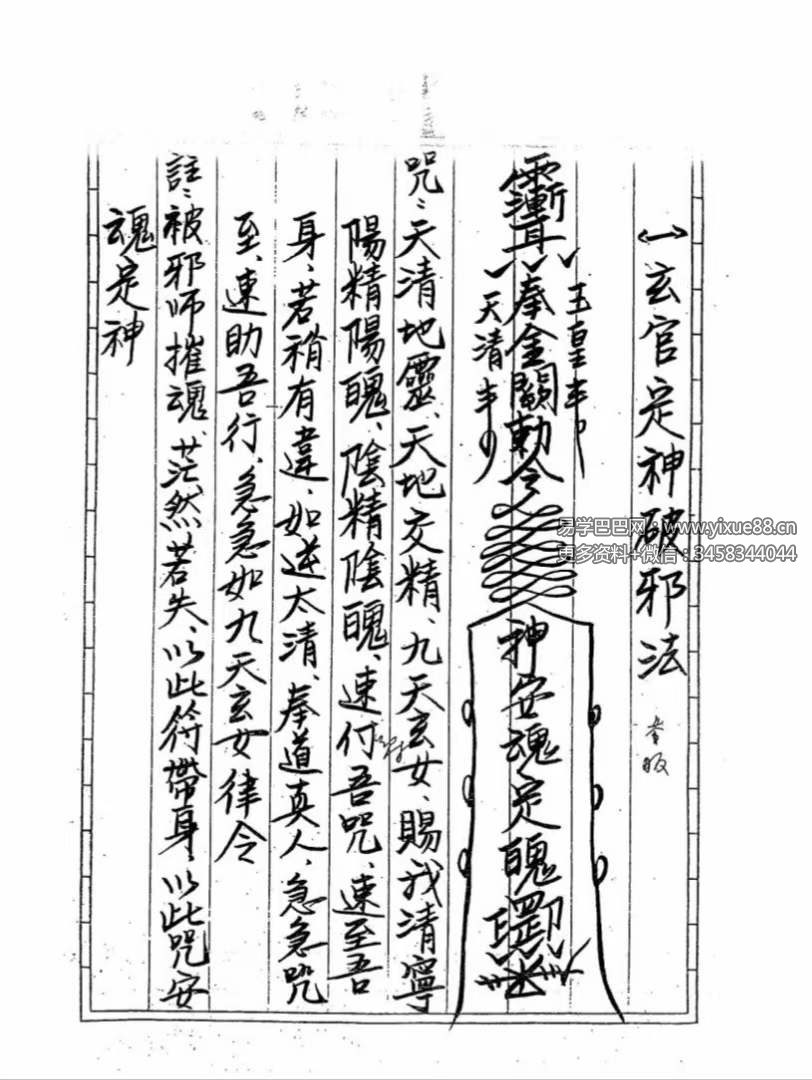 ㈠玄官定神破邪法
玉皇
奉金闕勅令
天清
神安魂定魄罡
咒：天清地靈、天地交精、九天玄女、賜我清寧
陽精陽魄、陰精陰魄、速付吾咒、速至吾
身、若稍有違、如逆太清、奉道真人、急急咒
至、速助吾行、急急如九天玄女律令
註：被邪师摧魂、茫然若失、以此符帶身、以此咒安
魂定神
易学巴巴网：www.yixue88.cn
更多资料+微信：3458344044